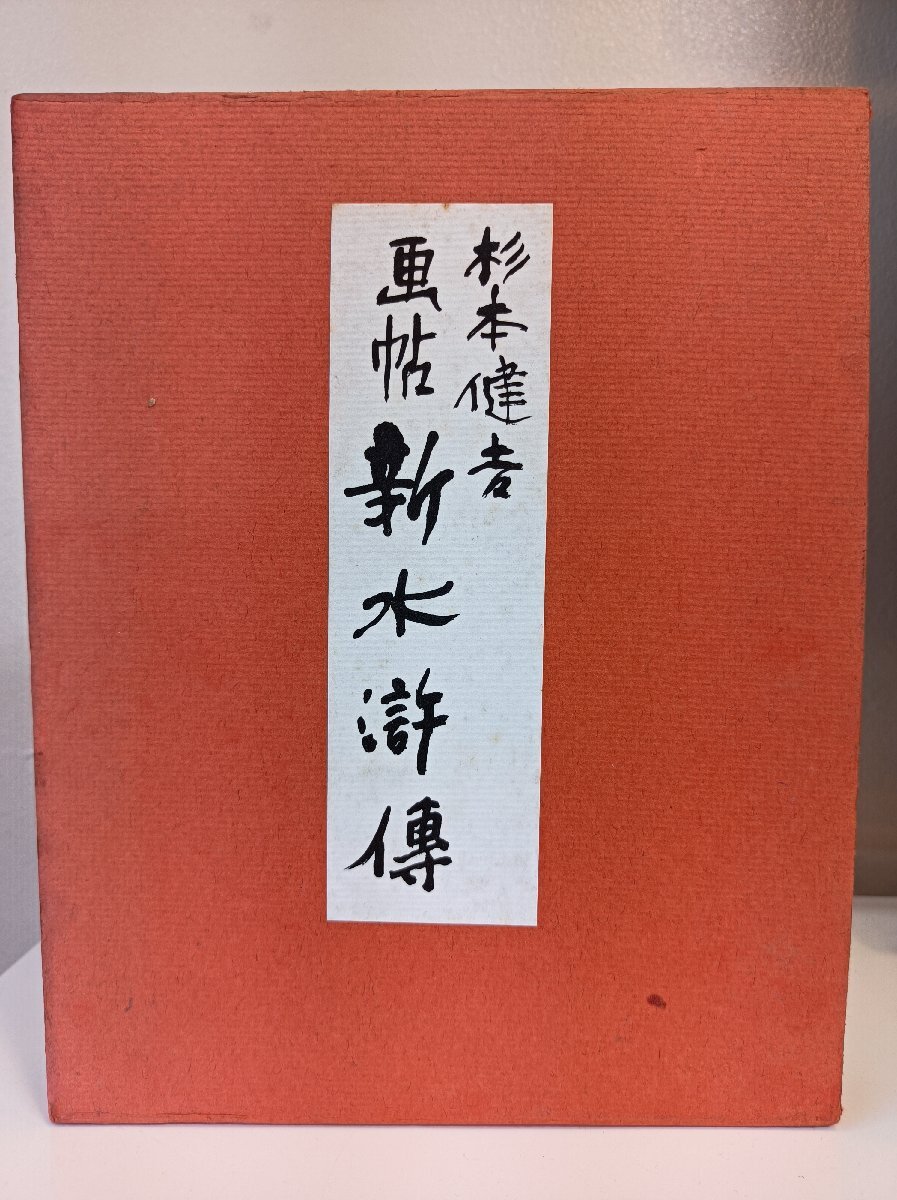 杉本健吉
画帖 新水滸傳